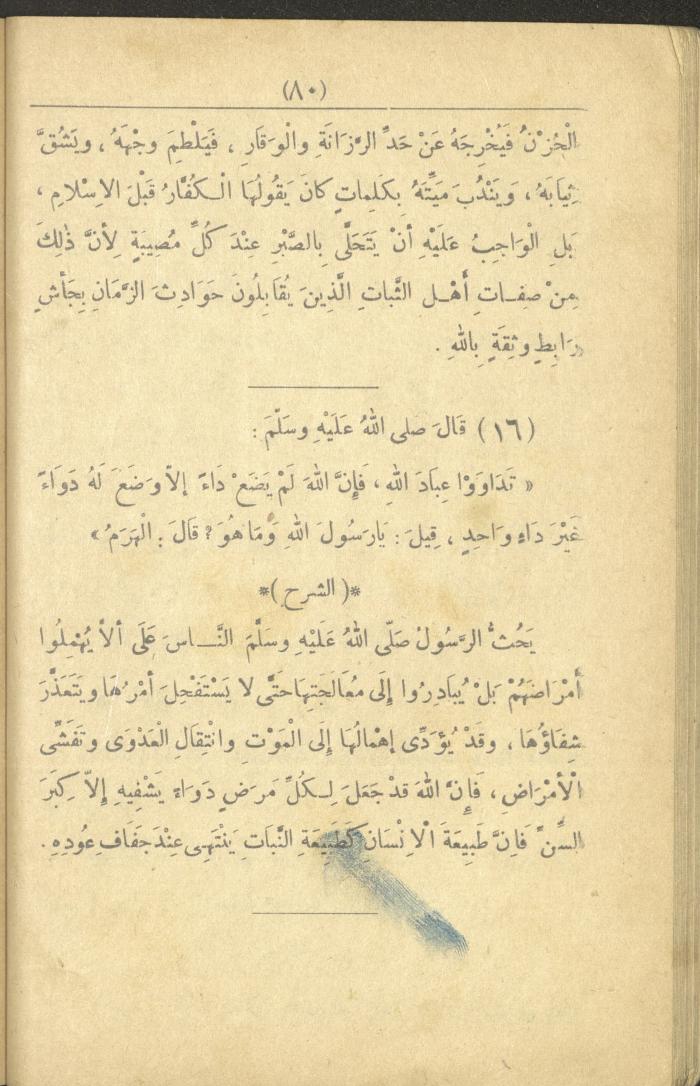 (٨٠)
الْحُزْنُ فَيُخْرِجَهُ عَنْ حَدِّ الرَّزَانَةِ وَالْوَقَارِ ، فَيَلْطِمَ وَجْهَهُ ، وَيَشُقَّ
ثِيَابَهُ ، وَيَنْدُبَ مَيِّتَهُ بِكَلِمَاتٍ كَانَ يَقُولُهَا الْكُفَّارُ قَبْلَ الاِسْلاَمِ ،
بَلِ الْوَاجِبُ عَلَيْهِ أَنْ يَتَحَلَّى بِالصَّبْرِ عِنْدَ كُلِّ مُصِيبَةٍ لِأَنَّ ذٰلِكَ
مِنْ صِفَاتِ أَهْلِ الثَّبَاتِ الَّذِينَ يُقَابِلُونَ حَوَادِثَ الزَّمَانِ بِجَأْشٍ
رَابِطٍ وثِقَةٍ بِاللهِ .
(١٦) قَالَ صلى اللهُ عَلَيْهِ وسَلَّمَ :
« تَدَاوَوْا عِبَادَ اللهِ ، فَإِنَّ اللهَ لَمْ يَضَعْ دَاءً إلاّ وَضَعَ لَهُ دَوَاءً
غَيْرَ دَاءٍ وَاحِدٍ ، قِيلَ : يَارَسُولَ اللهِ وَمَا هُوَ ؟ قَالَ : الْهَرَمُ »
*( الشرح )*
يَحُثُّ الرَّسُولُ صَلّى اللهُ عَلَيْهِ وسَلَّمَ النَّاسَ عَلَى أَلاَّ يُهْمِلُوا
أَمْرَاضَهُمْ بَلْ يُبَادِرُوا إِلَى مُعَالَجَتِهَا حَتَّى لا يَسْتَفْحِلَ أَمْرُهَا وَيَتَعَذَّرَ
شِفَاؤُهَا ، وقَدْ يُؤَدِّى إهْمالُهَا إِلَى الْمَوْتِ وانْتِقَالِ الْعَدْوَى وتَفَشِّى
الْأَمْرَاضِ ، فَإِنَّ اللهَ قدْ جَعَلَ لِكُلِّ مَرَضٍ دَوَاءً يَشْفِيهِ إِلاّ كِبَرَ
السِّنِّ فَاِنَّ طَبِيعَةَ الاِنْسَانِ كَطَبِيعَةِ النَّبَاتِ يَنْتَهِى عِنْدَ جَفَافِ عُودِهِ .